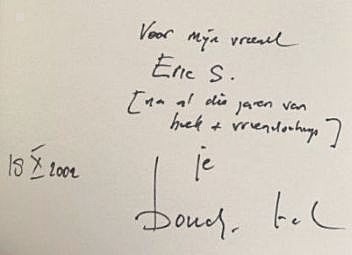 Voor mijn vriend
Eric S.
[na al die jaren van
boek + vriendschap]
je
18 X 2002